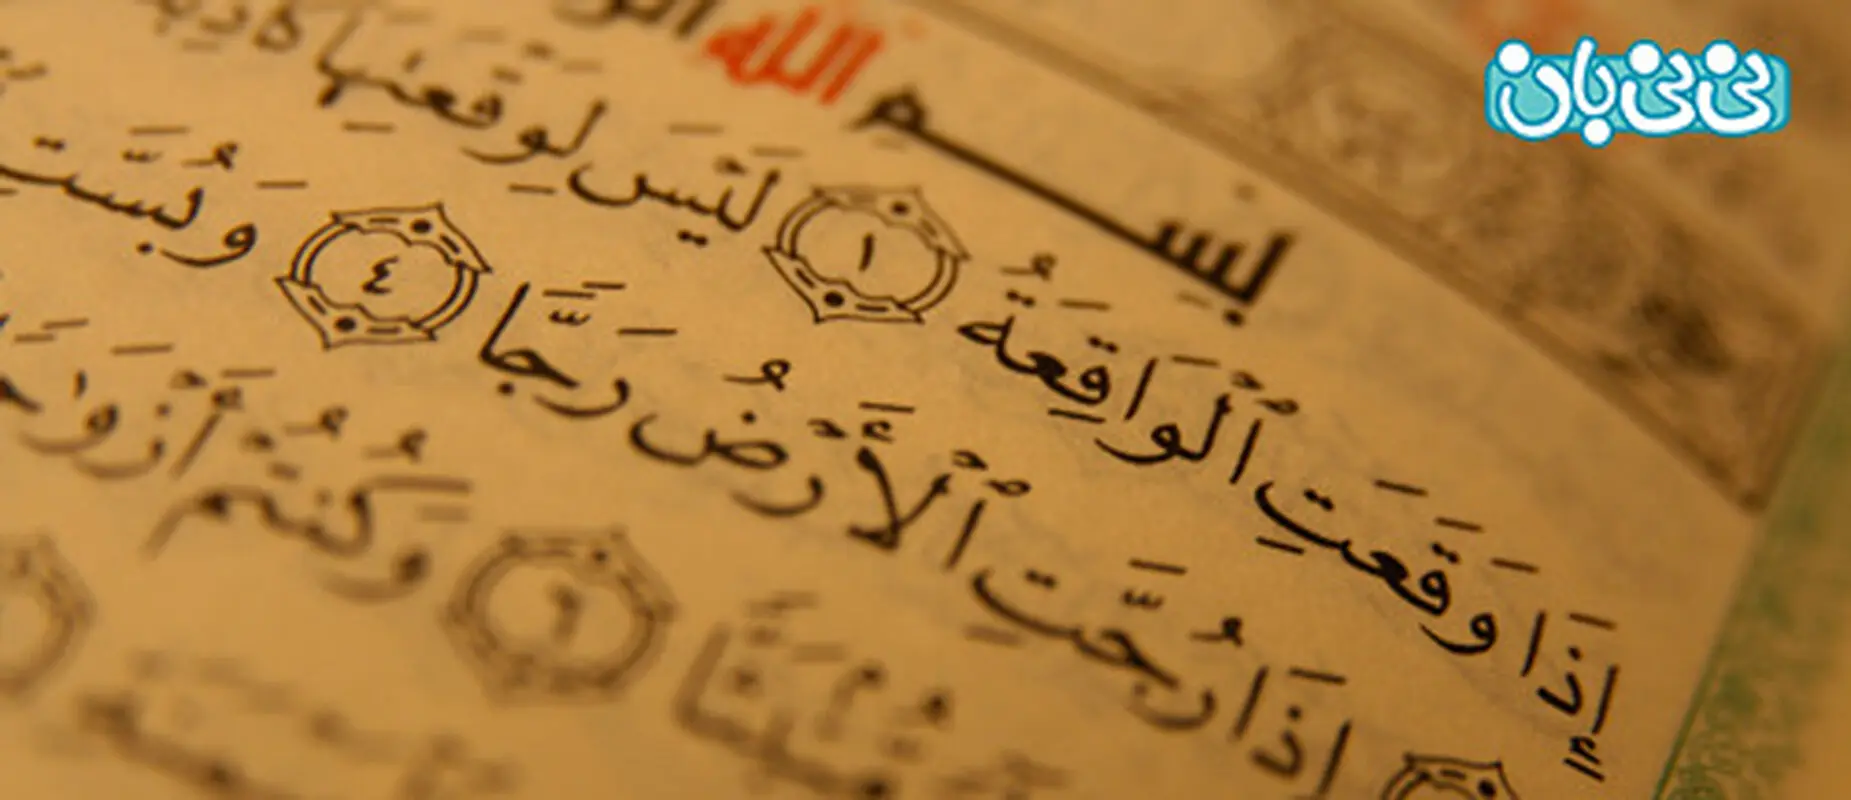 نی نی بان
بِسْمِ اللَّه
إِذَا وَقَعَتِ ٱلْوَاقِعَةُ ١ لَيْسَ لِوَقْعَتِهَا
إِذَا رُجَّتِ ٱلْأَرْضُ رَجًّا ٤ وَبُسَّتِ
مُّنۢبَثًّا ٦ وَكُنتُمْ أَزْوَٰجًا